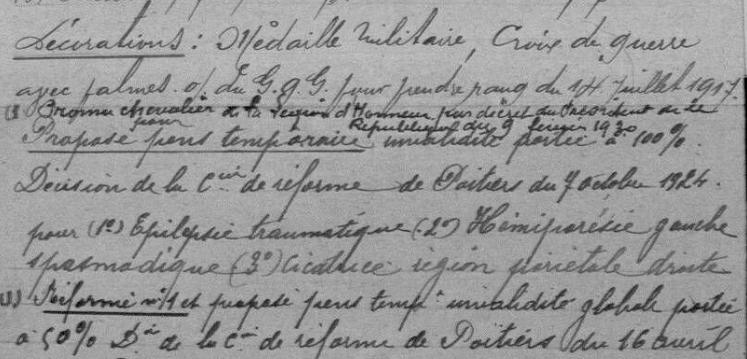 Décorations : Médaille Militaire, Croix de guerre
avec palmes. o/. du G.Q.G. pour prendre rang du 14 Juillet 1917.
(1) Promu chevalier de la Légion d'Honneur par décret du Président de la
République du 9 février 1930
Proposé pour pens temporaire invalidité portée à 100%.
Décision de la Cion de réforme de Poitiers du 7 octobre 1924.
pour (1º) Epilepsie traumatique (2º) Hémiparésie gauche
spasmodique (3º) Cicatrice région pariétale droite
(1) Réformé nº1 et proposé pens temp. invalidité globale portée
à 50% Don de la Con de réforme de Poitiers du 16 avril